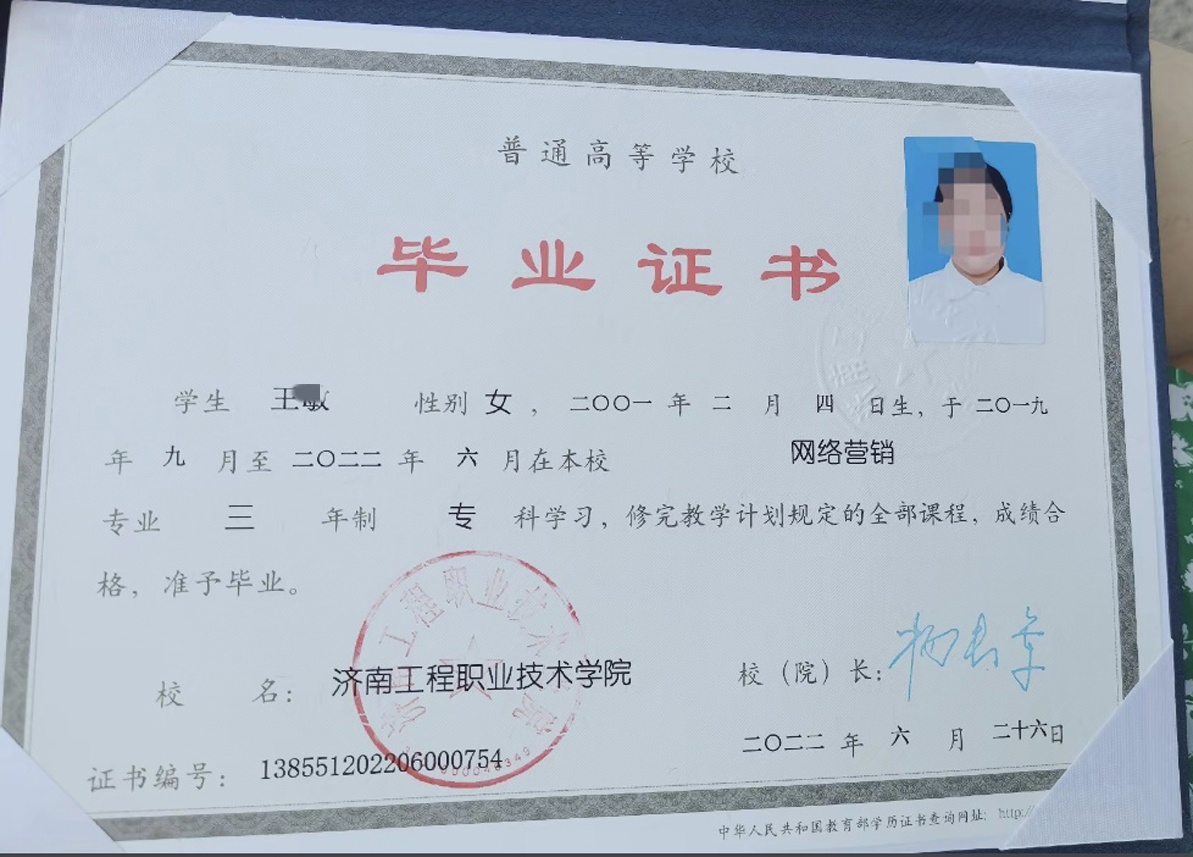 普通高等学校
毕业证书
学生 王敏 性别 女，二〇〇一年 二 月 四 日生，于二〇一九
年 九 月至 二〇二二 年 六 月在本校 网络营销
专业 三 年制 专 科学习，修完教学计划规定的全部课程，成绩合
格，准予毕业。
工程职业技术
校 名： 济南工程职业技术学院
校（院）长：
证书编号： 138551202206000754
二〇二二 年 六 月 二十六日
中华人民共和国教育部学历证书查询网址: http:/